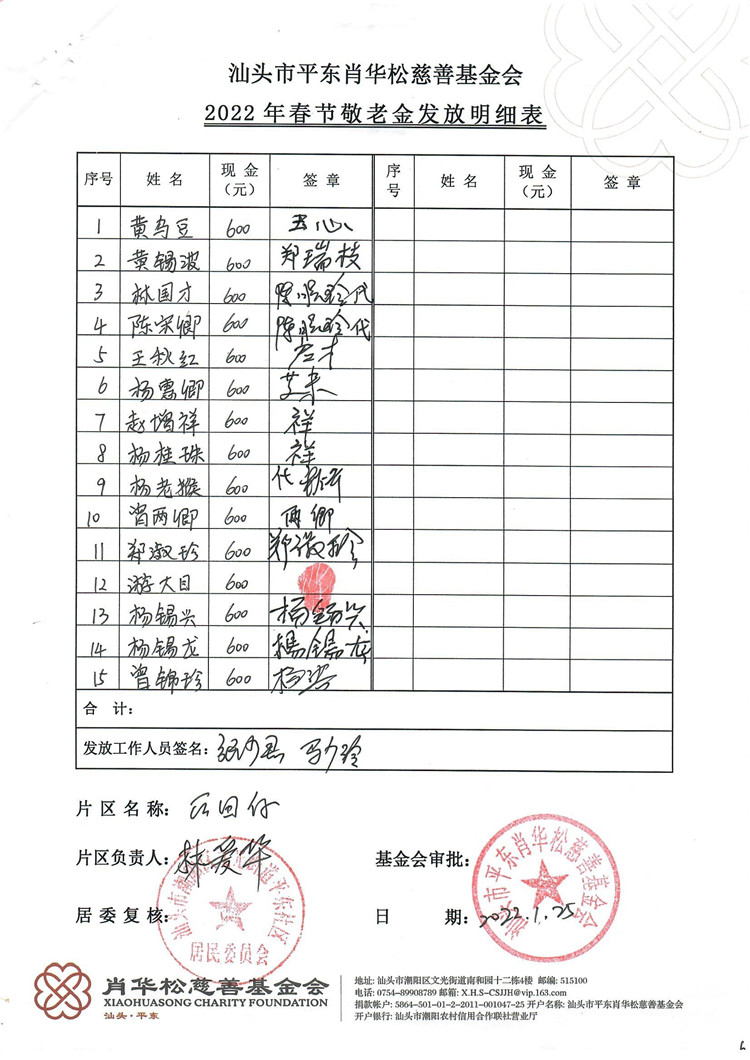 汕头市平东肖华松慈善基金会
2022年春节敬老金发放明细表
序号 姓名 现金(元) 签章 序号 姓名 现金(元) 签章
1 黄乌豆 600
2 黄锡波 600 郑瑞枝
3 林国才 600
4 陈宋卿 600
5 王秋红 600
6 杨惠卿 600
7 赵增祥 600 祥
8 杨桂珠 600 祥
9 杨老猴 600
10 曾两卿 600 两卿
11 郑淑珍 600 郑淑珍
12 游大目 600
13 杨锡兴 600 杨锡兴
14 杨锡龙 600 楊锡龙
15 曾锦珍 600
合 计:
发放工作人员签名:
片区名称:
片区负责人: 林爱华
基金会审批:
居委复核:
日 期: 2022.1.25
汕头市平东肖华松慈善基金会
平东社区
居民委员会
肖华松慈善基金会
XIAOHUASONG CHARITY FOUNDATION
汕头·平东
地址: 汕头市潮阳区文光街道南和园十二栋4楼 邮编: 515100
电话: 0754-89908789 邮箱: X.H.S-CSJJH@vip.163.com
捐款帐户: 5864-501-01-2-2011-001047-25 开户名称: 汕头市平东肖华松慈善基金会
开户银行: 汕头市潮阳农村信用合作联社营业厅